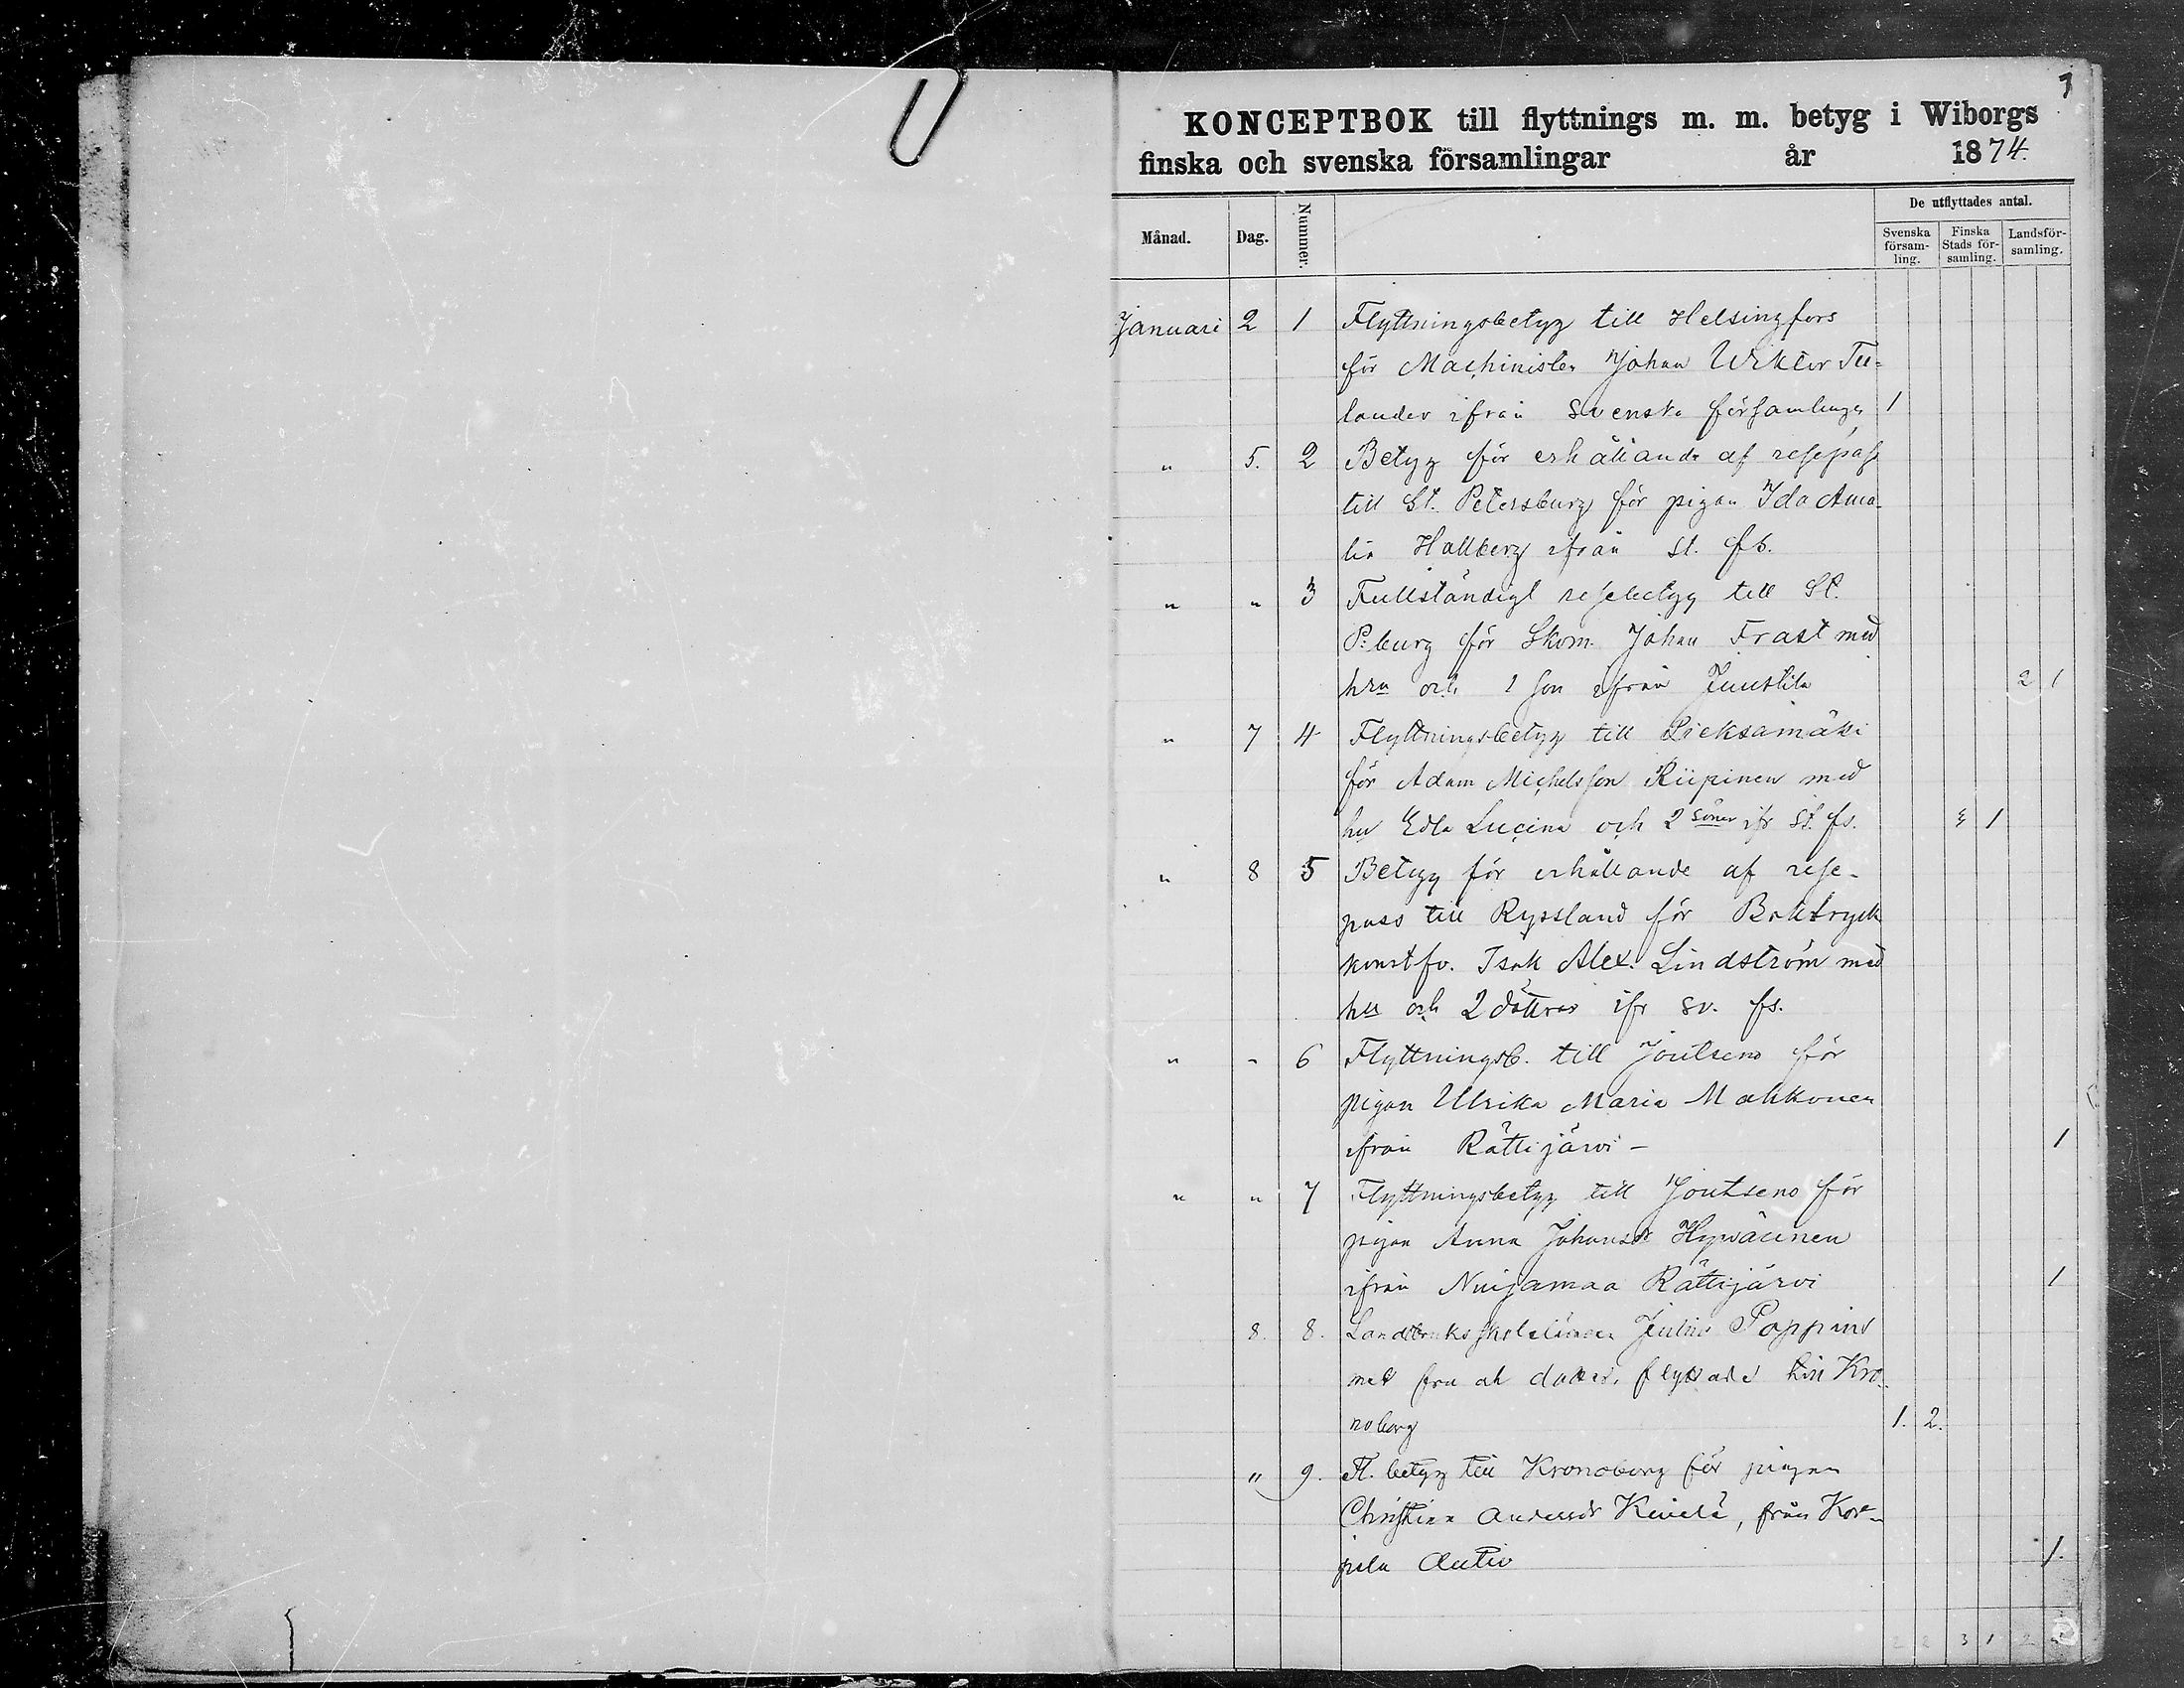 1
KONCEPTBOK till flyttnings m. m. betyg i Wiborgs
finska och svenska församlingar år 1874.
Månad. Dag. Nummer. De utflyttades antal.
Svenska församling. Finska Stads församling. Landsförsamling.
Januari 2 1 Flyttningsbetyg till Helsingfors
för Machinisten Johan Wiktor Tu-
lander ifrån Svenska församlingen 1
" 5. 2 Betyg för erhållande af resepass
till St. Petersburg för pigan Ida Ama-
lia Hallberg ifrån St. fs.
" " 3 Fullständigt resebetyg till St.
P:burg för Skom. Johan Frast med
hru och 1 son ifrån Juustila 2 1
" 7 4 Flyttningsbetyg till Pieksamäki
för Adam Michelsson Riipinen med
hu Edla Lucina och 2 söner ifr St. fs. 3 1
" 8 5 Betyg för erhållande af rese-
pass till Ryssland för Boktryck
konstfv. Isak Alex. Lindström med
hu och 2 döttrar ifr sv. fs.
" " 6 Flyttningsb. till Joutseno för
pigan Ulrika Maria Mahkonen
ifrån Rättijärvi – 1
" " 7 Flyttningsbetyg till Joutseno för
pigan Anna Johansdr Hyväinen
ifrån Nuijamaa Rättijärvi 1
8. 8. Landtbruksskoleläraren Julius Poppius
med fru och dotter, flyttade till Kro-
noborg 1. 2.
" 9. Fl. betyg till Kronoborg för pigan
Christina Andersdr Kiwelä, från Kor-
pela 1.
2 2 3 1 2